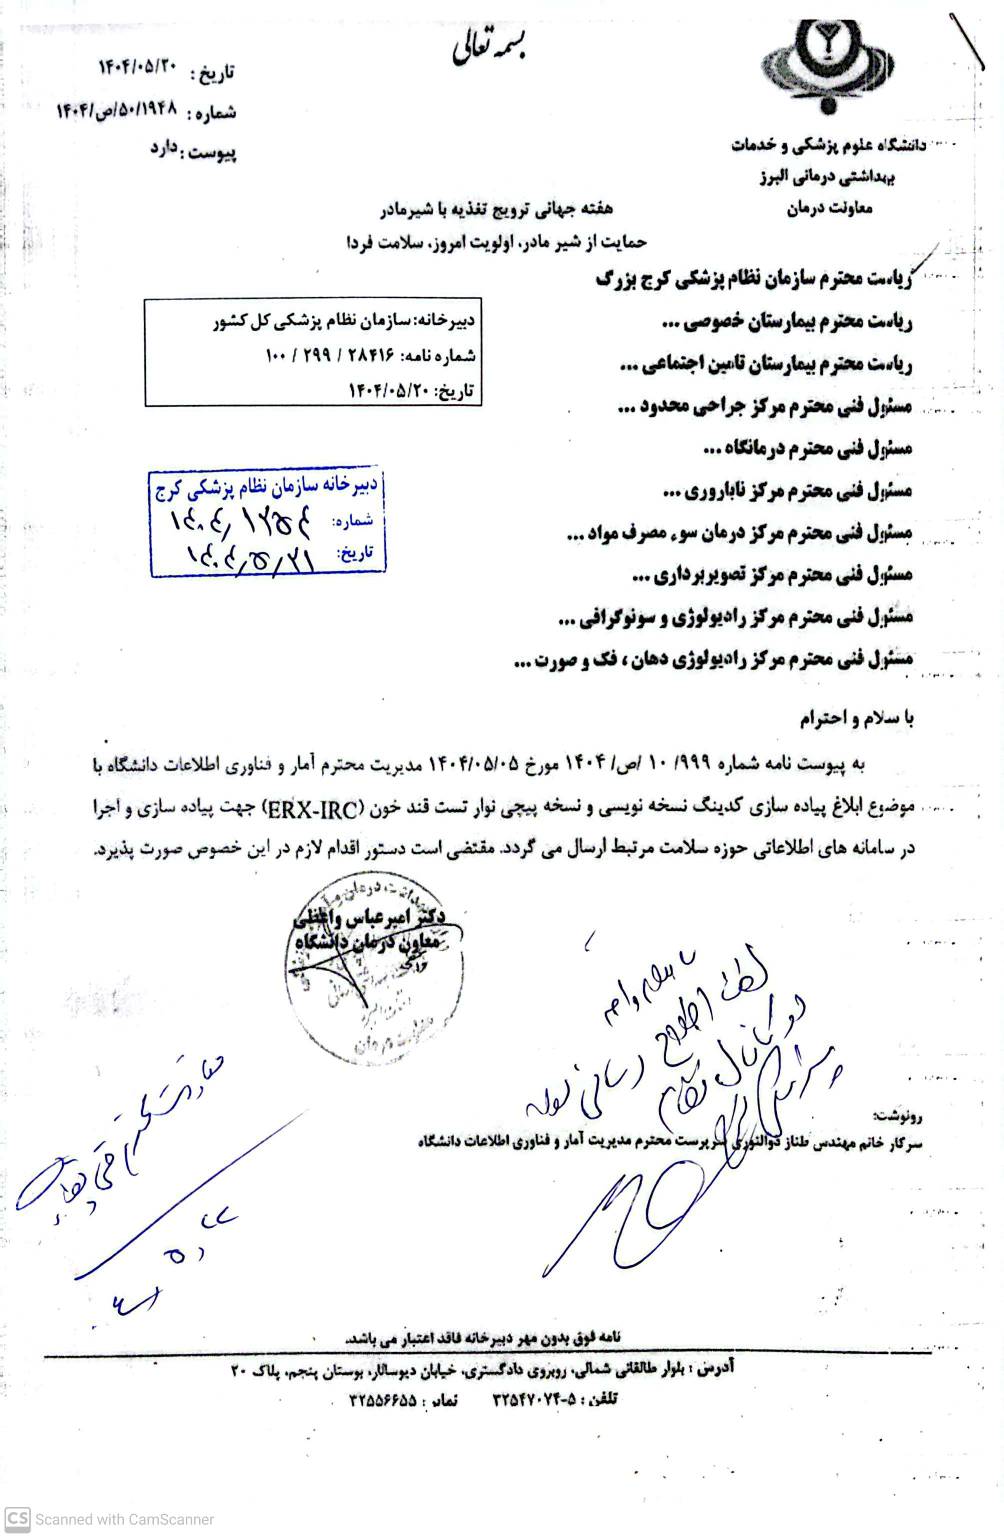 بسمه تعالی
تاریخ : ۱۴۰۴/۰۵/۲۰
شماره : ۱۴۰۴/ص/۵۰/۱۹۴۸
پیوست : دارد
دانشگاه علوم پزشکی و خدمات
بهداشتی درمانی البرز
معاونت درمان
هفته جهانی ترویج تغذیه با شیرمادر
حمایت از شیر مادر، اولویت امروز، سلامت فردا
ریاست محترم سازمان نظام پزشکی کرج بزرگ
ریاست محترم بیمارستان خصوصی ...
ریاست محترم بیمارستان تامین اجتماعی ...
مسئول فنی محترم مرکز جراحی محدود ...
مسئول فنی محترم درمانگاه ...
مسئول فنی محترم مرکز ناباروری ...
مسئول فنی محترم مرکز درمان سوء مصرف مواد ...
مسئول فنی محترم مرکز تصویربرداری ...
مسئول فنی محترم مرکز رادیولوژی و سونوگرافی ...
مسئول فنی محترم مرکز رادیولوژی دهان ، فک و صورت ...
دبیرخانه: سازمان نظام پزشکی کل کشور
شماره نامه: ۲۸۴۱۶ / ۲۹۹ / ۱۰۰
تاریخ: ۱۴۰۴/۰۵/۲۰
دبیرخانه سازمان نظام پزشکی کرج
شماره: ۱۴۰۴/۱۲۵۴
تاریخ: ۱۴۰۴/۵/۲۱
با سلام و احترام
به پیوست نامه شماره ۹۹۹/ ۱۰ /ص/ ۱۴۰۴ مورخ ۱۴۰۴/۰۵/۰۵ مدیریت محترم آمار و فناوری اطلاعات دانشگاه با
موضوع ابلاغ پیاده سازی کدینگ نسخه نویسی و نسخه پیچی نوار تست قند خون (ERX-IRC) جهت پیاده سازی و اجرا
در سامانه های اطلاعاتی حوزه سلامت مرتبط ارسال می گردد. مقتضی است دستور اقدام لازم در این خصوص صورت پذیرد.
دکتر امیرعباس واعظی
معاون درمان دانشگاه
لطفا اطلاع رسانی شود
در کانال نظام
رونوشت:
سرکار خانم مهندس طناز ذوالنوری سرپرست محترم مدیریت آمار و فناوری اطلاعات دانشگاه
نامه فوق بدون مهر دبیرخانه فاقد اعتبار می باشد.
آدرس : بلوار طالقانی شمالی، روبروی دادگستری، خیابان دیوسالار، بوستان پنجم، پلاک ۲۰
تلفن : ۵-۳۲۵۴۷۰۷۴ نمابر : ۳۲۵۵۶۶۵۵
CS Scanned with CamScanner